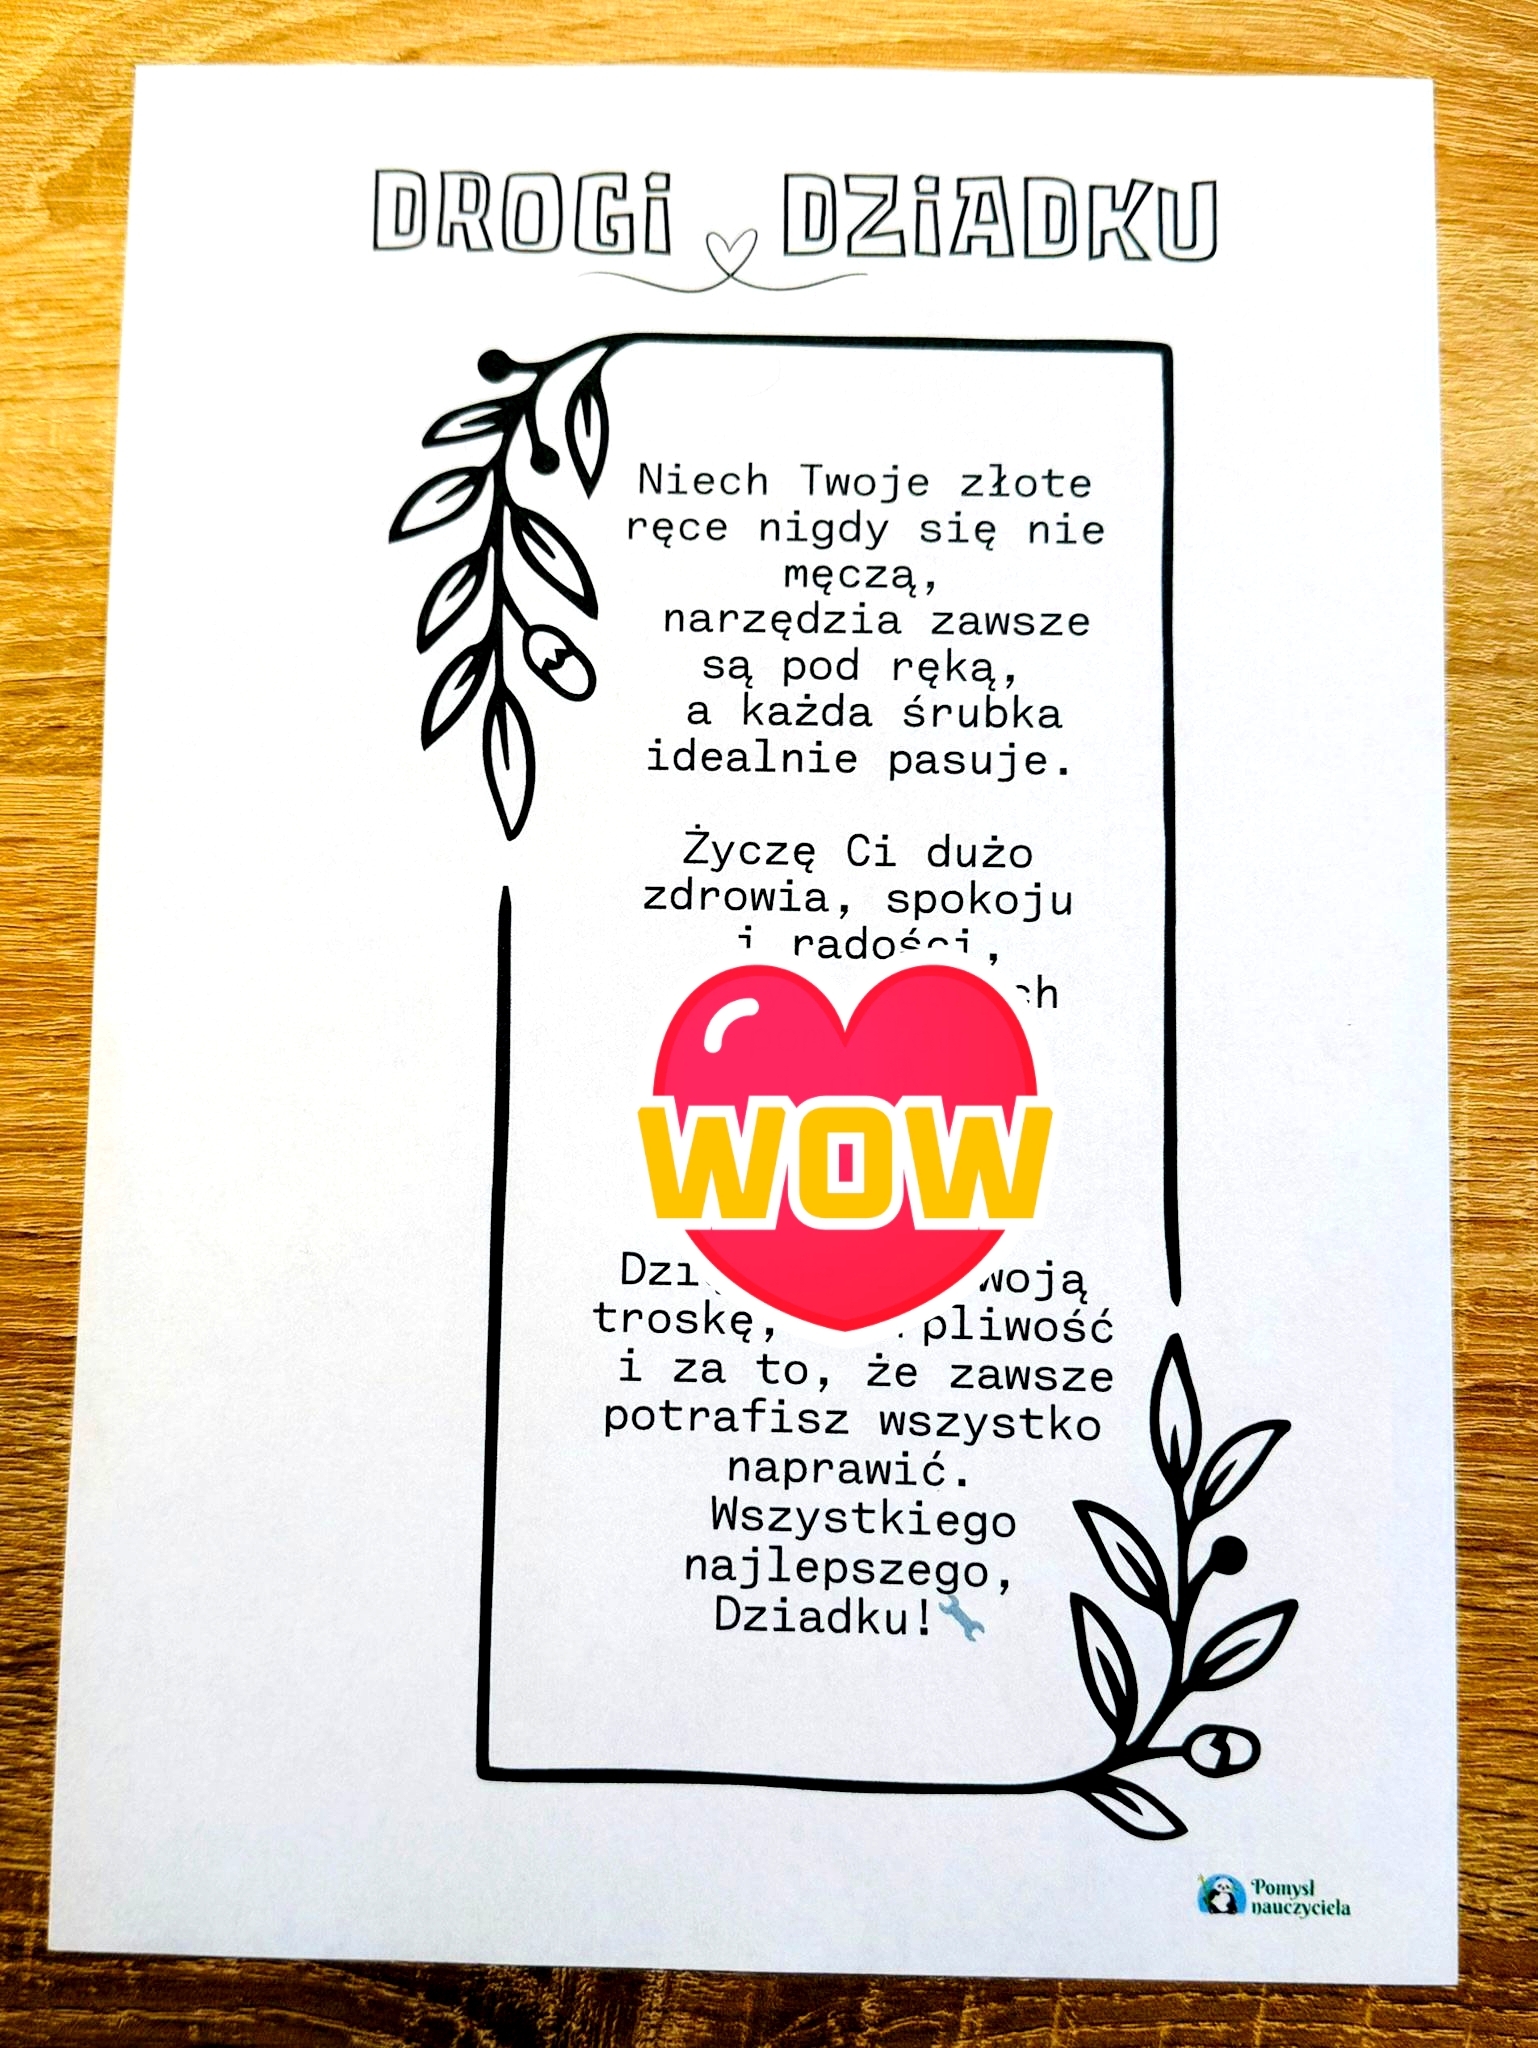 DROGI DZIADKU
Niech Twoje złote
ręce nigdy się nie
męczą,
narzędzia zawsze
są pod ręką,
a każda śrubka
idealnie pasuje.
Życzę Ci dużo
zdrowia, spokoju
i radości,
WOW
troskę,
i za to, że zawsze
potrafisz wszystko
naprawić.
Wszystkiego
najlepszego,
Dziadku!
Pomysł
nauczyciela